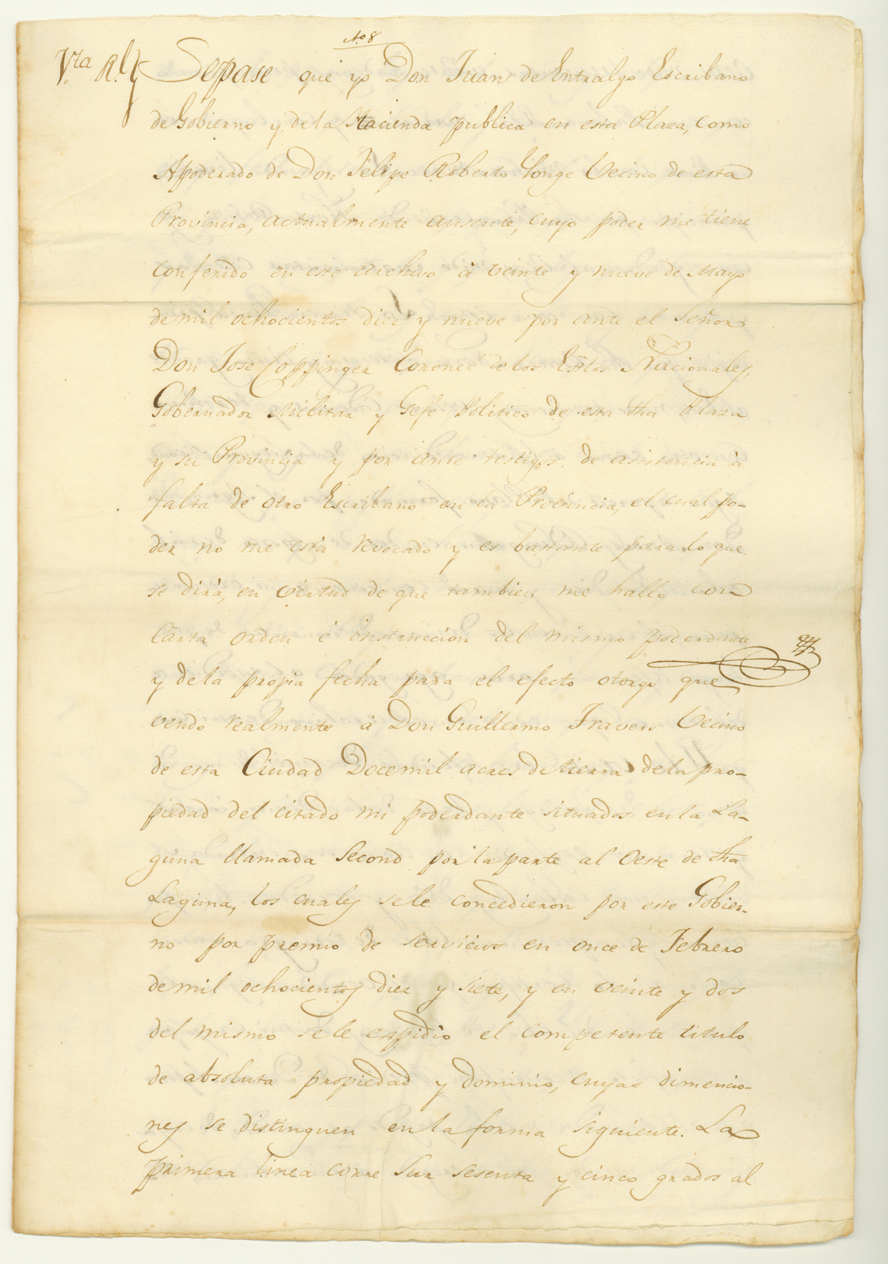 No. 8
Vta Rl Sepase que yo Don Juan de Entralgo Escribano
de Gobierno y de la Hacienda publica en esta Plaza, como
Apoderado de Don Felipe Roberto Yonge Vecino de esta
Provincia, actualmente ausente, cuyo poder me tiene
conferido en este archivo à veinte y nueve de Mayo
de mil ochocientos diez y nueve por ante el Señor
Don Jose Coppinger Coronel de los Extos Nacionales,
Gobernador Militar y Gefe Politico de esta dha Plaza
y su Provincia y por ante testigos de asistencia à
falta de otro Escribano en la Provincia, el cual po-
der no me está revocado y es bastante para lo que
se dirà, en virtud de que tambien me hallo con
Carta orden è instruccion del mismo poderdante
y de la propia fecha para el efecto otorgo que
vendo realmente à Don Guillermo Travers Vecino
de esta Ciudad Doce mil acres de tierra de la pro-
piedad del citado mi poderdante situados en la La-
guna llamada Second por la parte al Oeste de dha
Laguna, los cuales se le concedieron por este Gobier-
no por premio de servicios en once de Febrero
de mil ochocientos diez y siete, y en veinte y dos
del mismo se le expidio el competente titulo
de absoluta propiedad y dominio, cuyas dimencio-
nes se distinguen en la forma siguiente. La
primera linea corre Sur sesenta y cinco grados al